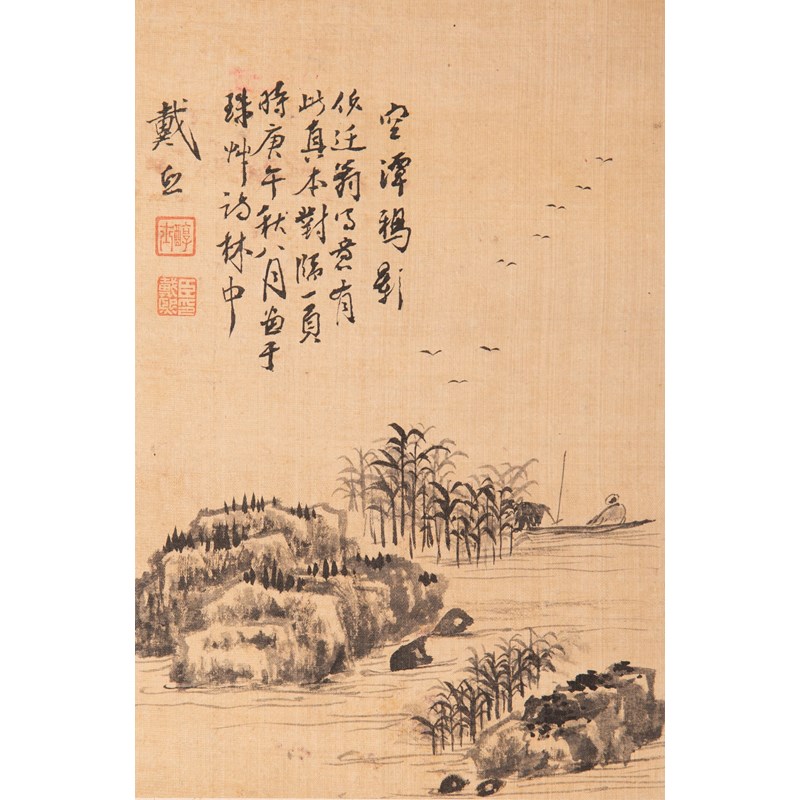 空潭鴉影
仿迂翁寫意有
此真本對臨一頁
時庚午秋八月畫于
珠艸詩林中
戴
臣戴熙印